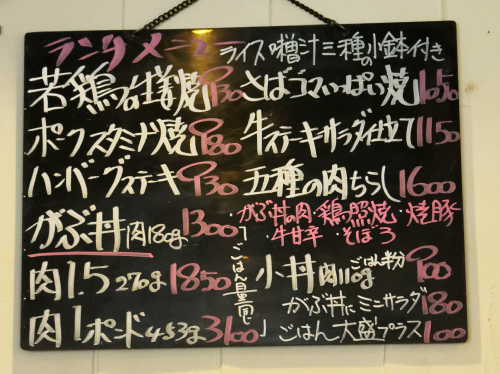 ランチメニュー ライス味噌汁三種の小鉢付き
若鶏山椒焼 930
さばゴマいっぱい焼 1050
ポークスタミナ焼 980
牛ステーキサラダ仕立て 1150
ハンバーグステーキ 930
五種の肉ちらし 1600
がぶ丼 肉180g 1300
がぶ丼の肉・鶏照焼・焼豚
牛甘辛・そぼろ
肉1.5 270g 1850
肉1ポンド 453g 3100
「ごはん量同じ」
小丼 肉110g ごはん半分 900
がぶ丼にミニサラダ 180
ごはん大盛プラス 100